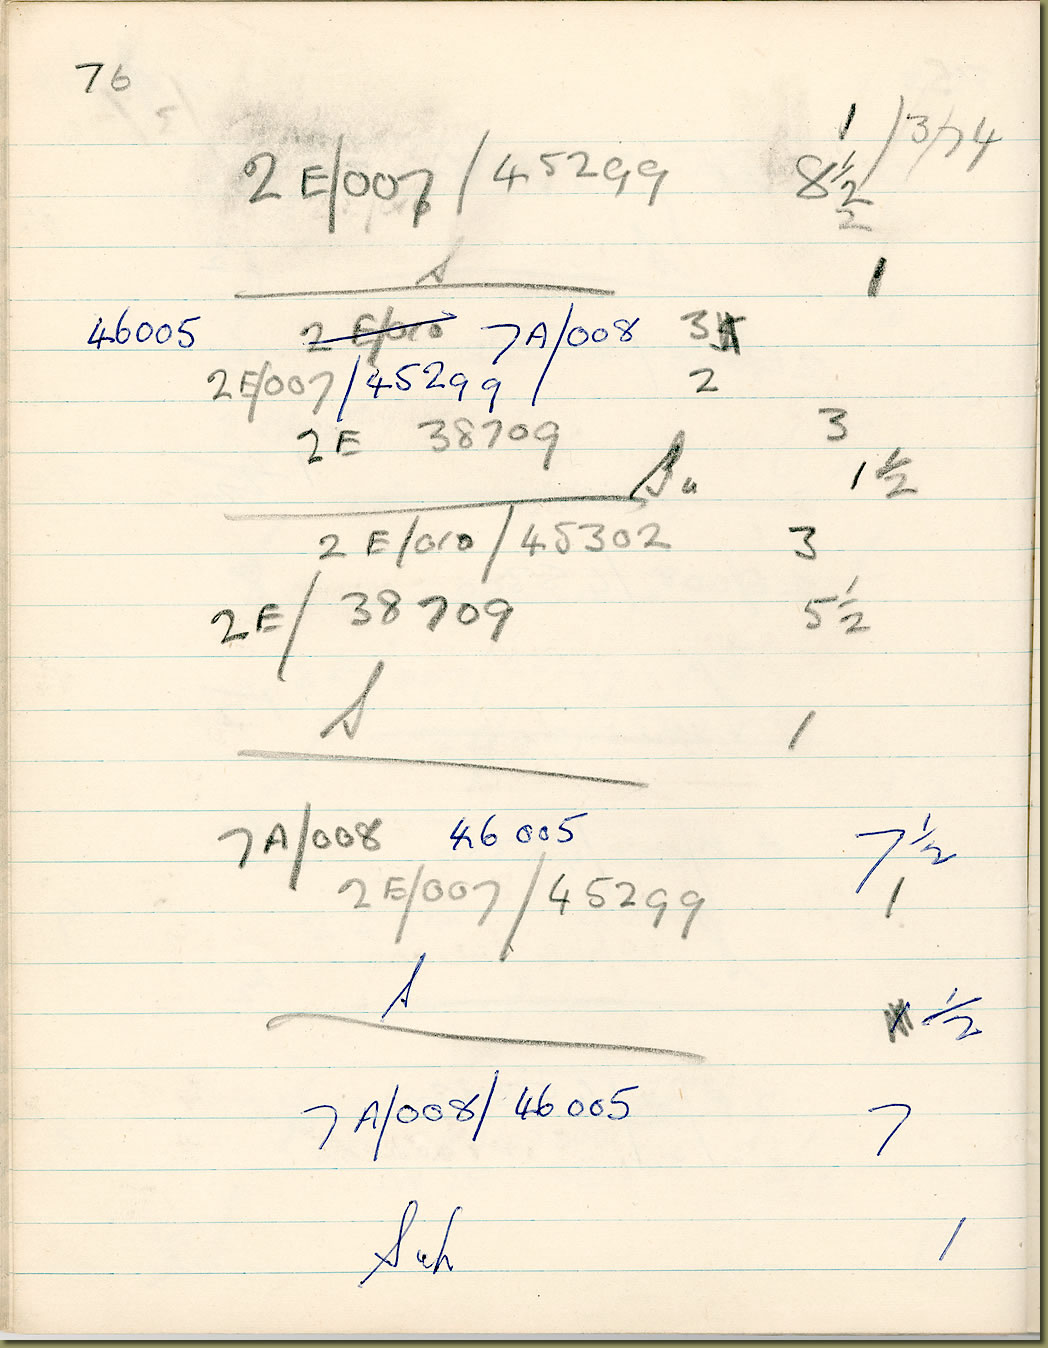 76
1/3/74
2E/007/45299 8½
2
S 1
46005 2E/010 7A/008 3
2E/007/45299 2
2E 38709 3
Su 1½
2E/010/45302 3
2E/38709 5½
S 1
7A/008 46005 7½
2E/007/45299 1
S ½
7A/008/46005 7
Suh 1